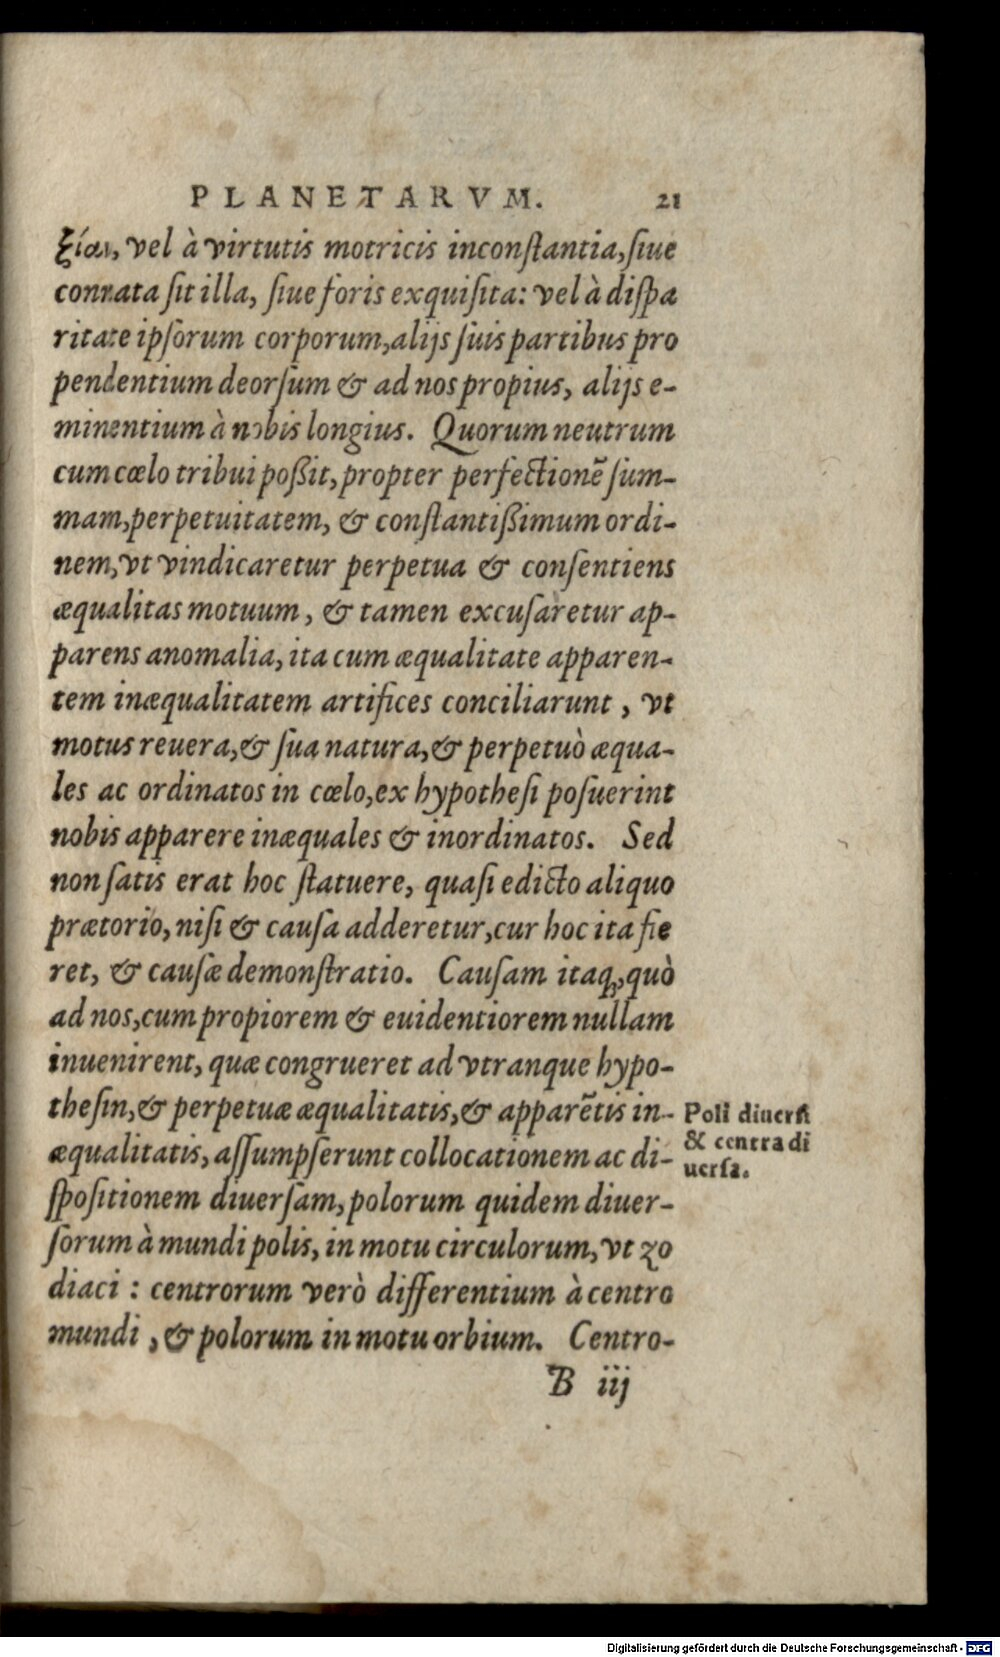 PLANETARVM. 21
ξίαι, vel à virtutis motricis inconſtantia, ſiue
connata ſit illa, ſiue foris exquiſita: vel à diſpa
ritate ipſorum corporum, alijs ſuis partibus pro
pendentium deorſum & ad nos propius, alijs e-
minentium à nobis longius. Quorum neutrum
cum cœlo tribui poßit, propter perfectionẽ ſum-
mam, perpetuitatem, & conſtantißimum ordi-
nem, vt vindicaretur perpetua & conſentiens
æqualitas motuum, & tamen excuſaretur ap-
parens anomalia, ita cum æqualitate apparen-
tem inæqualitatem artifices conciliarunt, vt
motus reuera, & ſua natura, & perpetuò æqua-
les ac ordinatos in cœlo, ex hypotheſi poſuerint
nobis apparere inæquales & inordinatos. Sed
non ſatis erat hoc ſtatuere, quaſi edicto aliquo
prætorio, niſi & cauſa adderetur, cur hoc ita fie
ret, & cauſæ demonſtratio. Cauſam itaq;, quò
ad nos, cum propiorem & euidentiorem nullam
inuenirent, quæ congrueret ad vtranque hypo-
theſin, & perpetuæ æqualitatis, & apparẽtis in-
æqualitatis, aſſumpſerunt collocationem ac di-
ſpoſitionem diuerſam, polorum quidem diuer-
ſorum à mundi polis, in motu circulorum, vt zo
diaci : centrorum verò differentium à centro
mundi, & polorum in motu orbium. Centro-
B iij
Poli diuerſi
& centra di
uerſa.
Digitalisierung gefördert durch die Deutsche Forschungsgemeinschaft - DFG